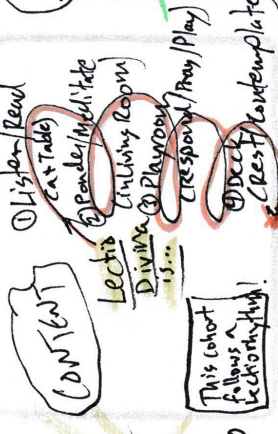 CONTENT
Lectio
Divina
is...
① Listen/Read
(at Table)
② Ponder/Meditate
(Living Room)
③ Playroom
(Respond/Pray/Play)
④ Deck
(Rest/Contemplate
This cohort
follows a
lectio rhythm!